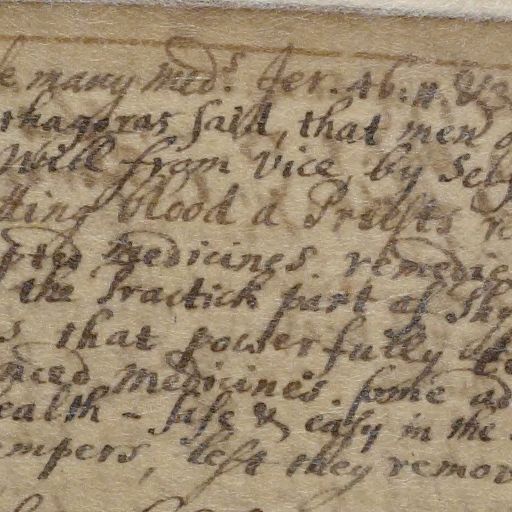 many Meds. Jer. 46. 11. &
thagoras said, that men
Will from Vice, by Self
tting blood a Priests
pted Medicines. remedie
the Practick part of Phy
s that powerfully
nced Medicines. some ad
ealth - safe & easy in the
empers, lest they remov